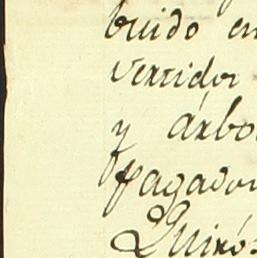 buido en
vertidor
y árbo
pagador
Quiró